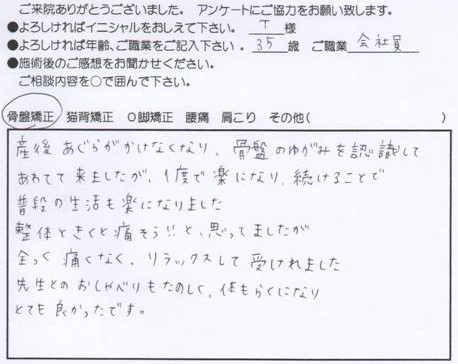 ご来院ありがとうございました。 アンケートにご協力をお願い致します。
●よろしければイニシャルをおしえて下さい。 T 様
●よろしければ年齢、ご職業をご記入下さい。 35 歳 ご職業 会社員
●施術後のご感想をお聞かせください。
ご相談内容を○で囲んで下さい。
骨盤矯正 猫背矯正 O脚矯正 腰痛 肩こり その他( )
産後 あぐらがかけなくなり、骨盤のゆがみを認識して
あわてて来ましたが、1度で楽になり、続けることで
普段の生活も楽になりました
整体ときくと痛そう!!と、思ってましたが
全く痛くなく、リラックスして受けれました
先生とのおしゃべりもたのしく、体もらくになり
とても良かったです。